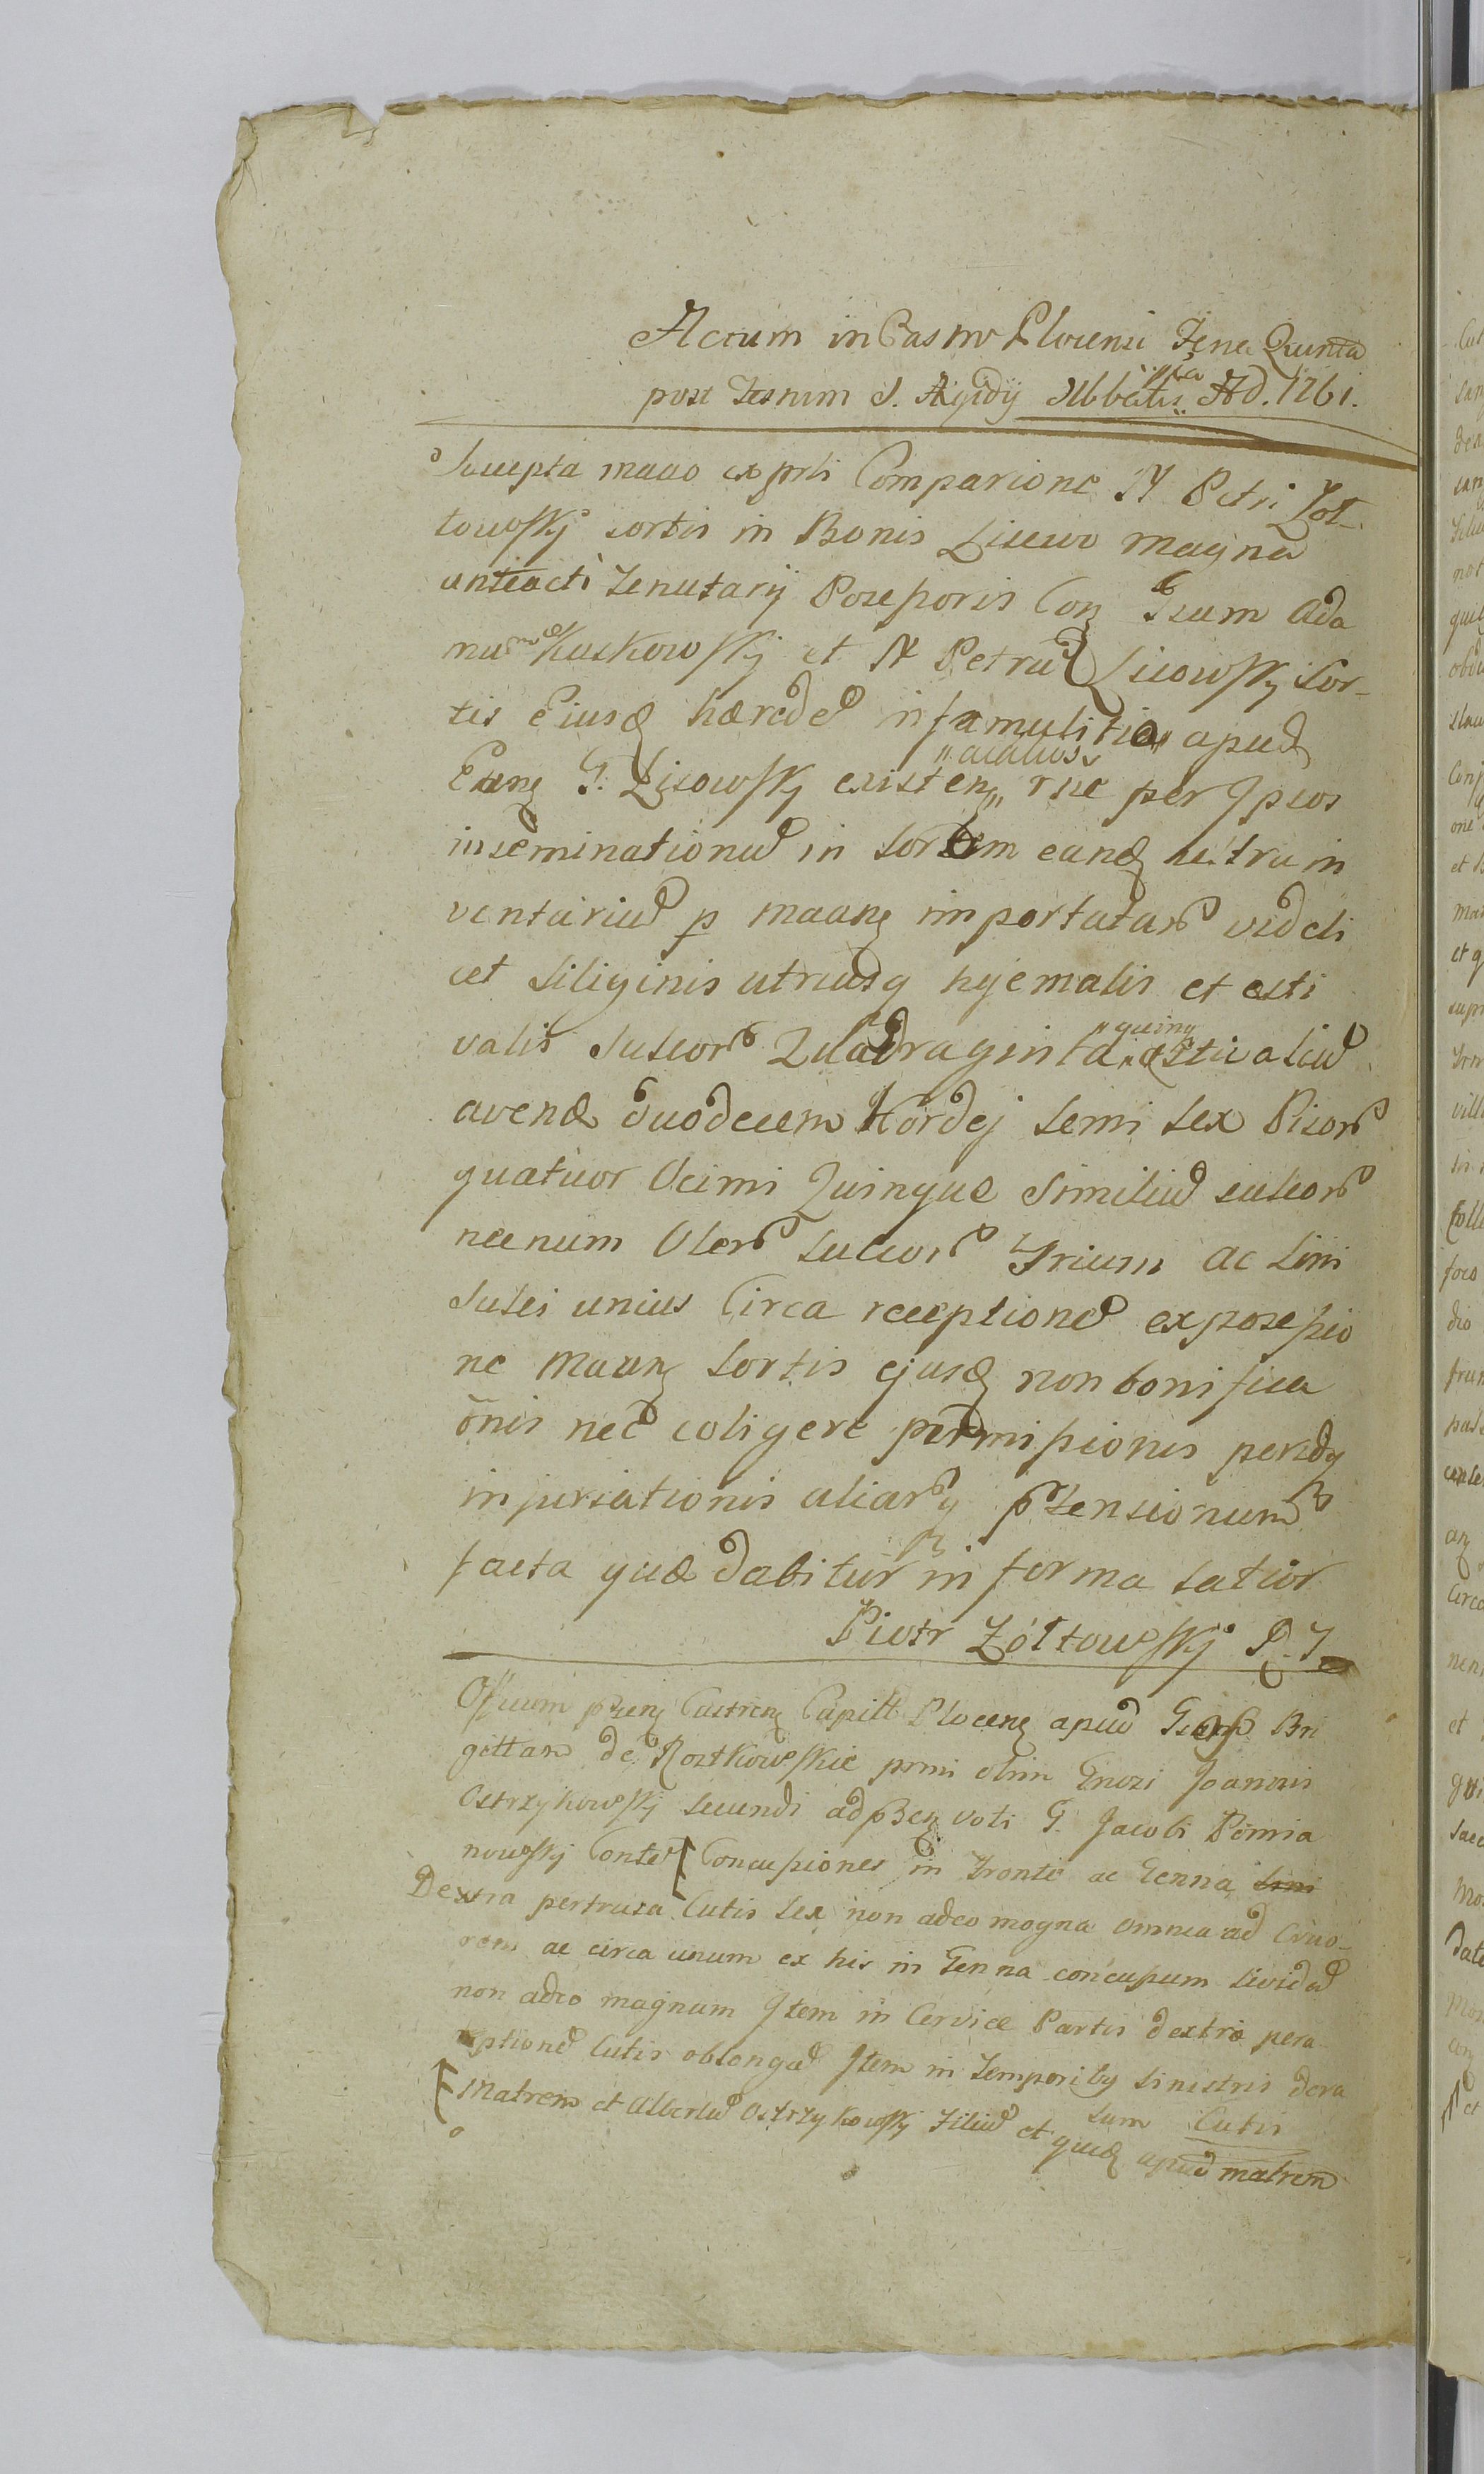 Actum in Castro Plocensi Feria Quinta
post Festum S. Ægidij Abbatis Ad. 1761.
Suscepta mano ex prti Comparione N Petri Żoł-
towsky sortis in Bonis Lisewo Magna
anteacti Tenutarij Possessoris Con Gsum Ada
mum Kuskowsky et N Petrum Lisowsky Sor-
tis Eiusd hæredem in famulitio apud
Eund G. Lisowsky existen rne per Ipsos
inseminationum in Sortem eand ultra in
ventarium p maang importatam videli
cet Siliginis utriusq hyemalis et esti
valis Sulcorum Quadraginta "quinq" æstivalium
avenæ duodecem Hordej Semi Sex Pisorum
quatuor Ocimi Quinque Similium sulcorum
necnum Olerum Sulcorum Trium ac Lini
Sulci unius Circa receptionem ex possessio
ne Maang Sortis ejusd non bonifica
onis nec coligere permissionis perindq
injuriationis aliarumq prætensionum
facta quæ dabitur in forma latior
Piotr Żółtowsky P. T
Officium præns Castren Capitl Plocens apud Gsam Bri
gittam de Rostkowskie primi olim Gnrosi Joannis
Ostrzykowsky secundi ad præsen voti G. Jacobi Pomia
nowsky Contem Concussiones in Fronte ac Genna
Dextra pertrusa Cutis Sex non adeo magna omnia ad Cruo-
rem ac circa unum ex his in Genna concussum lividum
non adeo magnum Item in Cervice Partis dextræ pera
eptionem Cutis oblongam Item in Temporibq Sinistris dera
sum Cutis
Matrem et Albertum Ostrzykowsky Filium et quid apud matrem